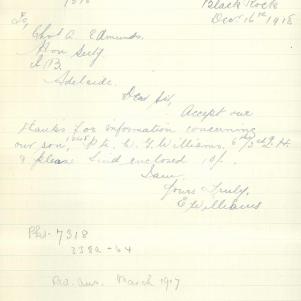 1318
Black Rock
Dec. 16th 1918
To,
Chas A. Edmunds.
Hon Secty
I.B.
Adelaide.
Dear Sir,
Accept our
thanks for information concerning
our son, Pte. W. J. Williams,
& please find enclosed 10/-
I am
Yours Truly
E Williams
Pks - 7318
338a - 64
March 1917